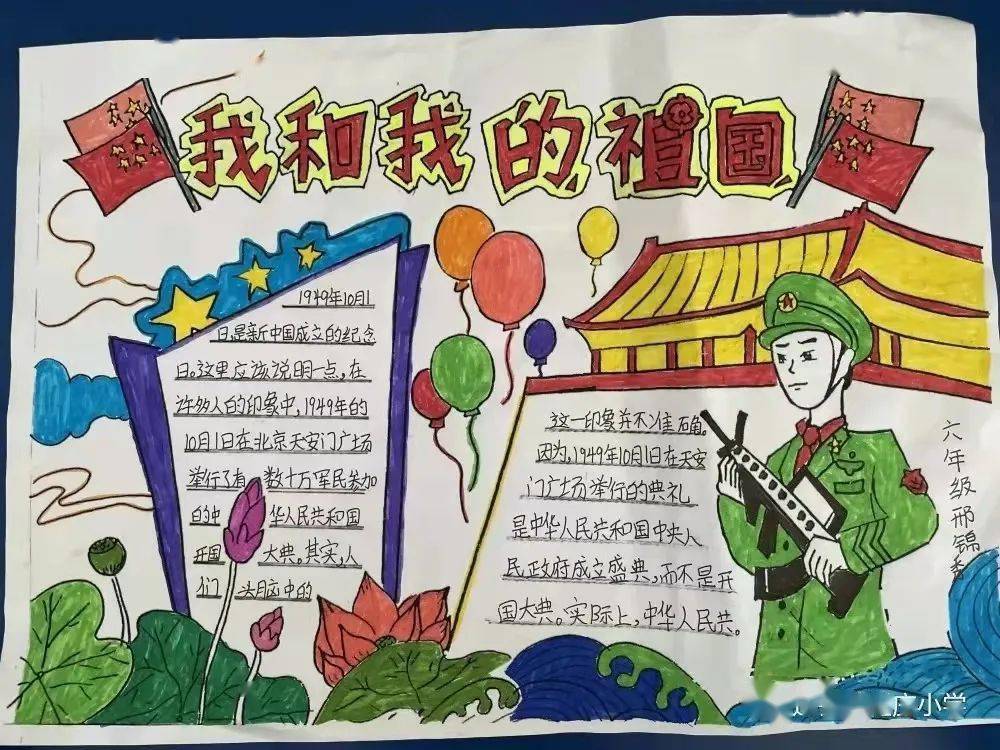 我和我的祖国
1949年10月1
日,是新中国成立的纪念
日。这里应该说明一点,在
许多人的印象中,1949年的
10月1日在北京天安门广场
举行了有数十万军民参加
的中华人民共和国
开国大典。其实,人
们头脑中的
这一印象并不准确。
因为,1949年10月1日在天安
门广场举行的典礼
是中华人民共和国中央人
民政府成立盛典,而不是开
国大典。实际上,中华人民共。
六年级邢锦香
小学